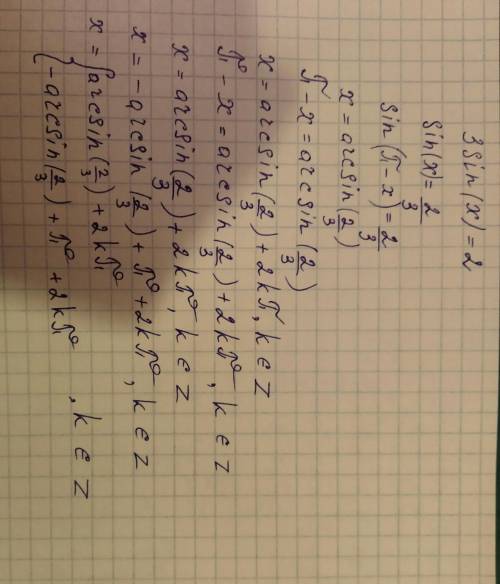 3sin(x)=2
sin(x)=2/3
sin(π-x)=2/3
x=arcsin(2/3)
π-x=arcsin(2/3)
x=arcsin(2/3)+2kπ, k∈Z
π-x=arcsin(2/3)+2kπ, k∈Z
x=arcsin(2/3)+2kπ, k∈Z
x=-arcsin(2/3)+π+2kπ, k∈Z
x={arcsin(2/3)+2kπ
{-arcsin(2/3)+π+2kπ, k∈Z